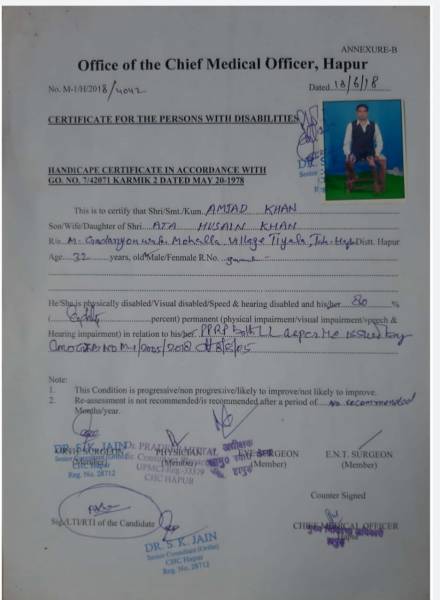 ANNEXURE-B
Office of the Chief Medical Officer, Hapur
No. M-1/H/2018/4042 Dated 13/6/18
CERTIFICATE FOR THE PERSONS WITH DISABILITIES
HANDICAPE CERTIFICATE IN ACCORDANCE WITH
GO. NO. 7/42071 KARMIK 2 DATED MAY 20-1978
This is to certify that Shri/Smt./Kum. AMJAD KHAN
Son/Wife/Daughter of Shri ATA HUSAIN KHAN
R/o Mohalla, Village Distt. Hapur
Age 32 years, old Male/Fenmale R.No.
He/She is physically disabled/Visual disabled/Speed & hearing disabled and his/her 80 %
(Eighty percent) permanent (physical impairment/visual impairment/speech &
Hearing impairment) in relation to his/her PPRP issued by
Note:
1. This Condition is progressive/non progrexive/likely to improve/not likely to improve.
2. Re-assessment is not recommended/is recommended after a period of no recommended
Months/year.
DR. S.K. JAIN
Senior Consultant (Ortho)
CHC Hapur
Reg. No. 28712
ORTH. SURGEON
(Member)
PHYSICIAN
(Member)
CHC HAPUR
EYE SURGEON
(Member)
E.N.T. SURGEON
(Member)
Counter Signed
Sig./LTI/RTI of the Candidate
CHIEF MEDICAL OFFICER
Hapur
मुख्य चिकित्सा अधिकारी
हापुड़
DR. S. K. JAIN
Senior Consultant (Ortho)
CHC Hapur
Reg. No. 28712